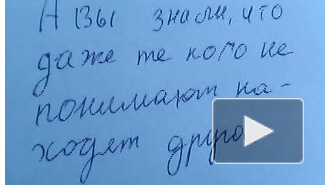 А ВЫ знали, что
даже те кого не
понимают на-
ходят